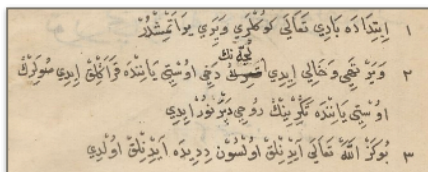 ١ اِبْتِدَادَه بَارِي تَعَالَي كوُكْلَرِي وَيَرِي يَرَاتْمِشْدُرْ
لُجَّه نِكْ
٢ وَيَرْ تِهِي وَخَالِي اِيدِي دَخِي اوُسْتِي يَانِنْدَه قَرَاكْلِقْ اِيدِي صُولَرِكْ
اوُسْتِي يَانِنْدَه تَكْرِينِكْ رُوحِي دِپْرَنُورْ اِيدِي
٣ بُوكَزْ اللّٰه تَعَالَي اَيْدِنْلِقْ اوُلْسُونْ دِدِيدَه اَيْدِنْلِقْ اوُلْدِي